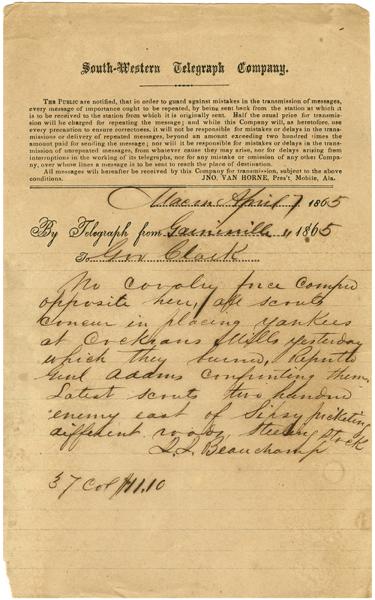 South-Western Telegraph Company.
THE PUBLIC are notified, that in order to guard against mistakes in the transmission of messages,
every message of importance ought to be repeated, by being sent back from the station at which it
is to be received to the station from which it is originally sent. Half the usual price for transmis-
sion will be charged for repeating the message; and while this Company will, as heretofore, use
every precaution to ensure correctness, it will not be responsible for mistakes or delays in the trans-
missions or delivery of repeated messages, beyond an amount exceeding two hundred times the
amount paid for sending the message; nor will it be responsible for mistakes or delays in the trans-
mission of unrepeated messages, from whatever cause they may arise, nor for delays arising from
interruptions in the working of its telegraphs, nor for any mistake or omission of any other Compa-
ny, over whose lines a message is to be sent to reach the place of destination.
All messages will hereafter be received by this Company for transmission, subject to the above
conditions. JNO. VAN HORNE, Pres't, Mobile, Ala.
Macon April 7 1865
By Telegraph from Gainsville 1865
To Gov Clark
No cavalry force
opposite here, all scouts
concur in placing yankees
at Cochrans Mills yesterday
which they burned,
Genl Adams confronting them,
Latest scouts two hundred
enemy east of Sipsy picketing
different roads, stealing stock
Beauchamp
37 Col 11.10